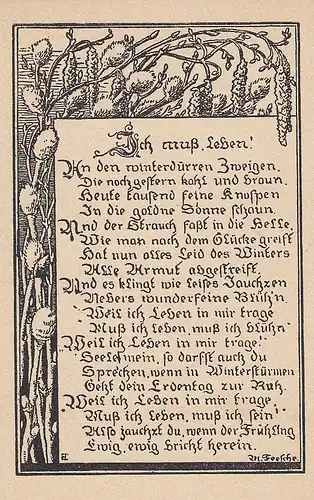 Ich muß leben!
An den winterdürren Zweigen,
Die noch gestern kahl und braun,
Heute tausend feine Knospen
In die goldne Sonne schaun.
Und der Strauch faßt in die Helle,
Wie man nach dem Glücke greift
Hat nun alles Leid des Winters
Alle Armut abgestreift.
Und es klingt wie leises Jauchzen
Uebers wunderfeine Blühn.
Weil ich Leben in mir trage
Muß ich leben, muß ich blühn
Weil ich Leben in mir trage!
Seele mein, so darfst auch du
Sprechen, wenn in Winterstürmen
Geht dein Erdentag zur Ruh.
Weil ich Leben in mir trage,
Muß ich leben, muß ich sein!
Also jauchzt du, wenn der Frühling
Ewig, ewig bricht herein.
M. Feesche.